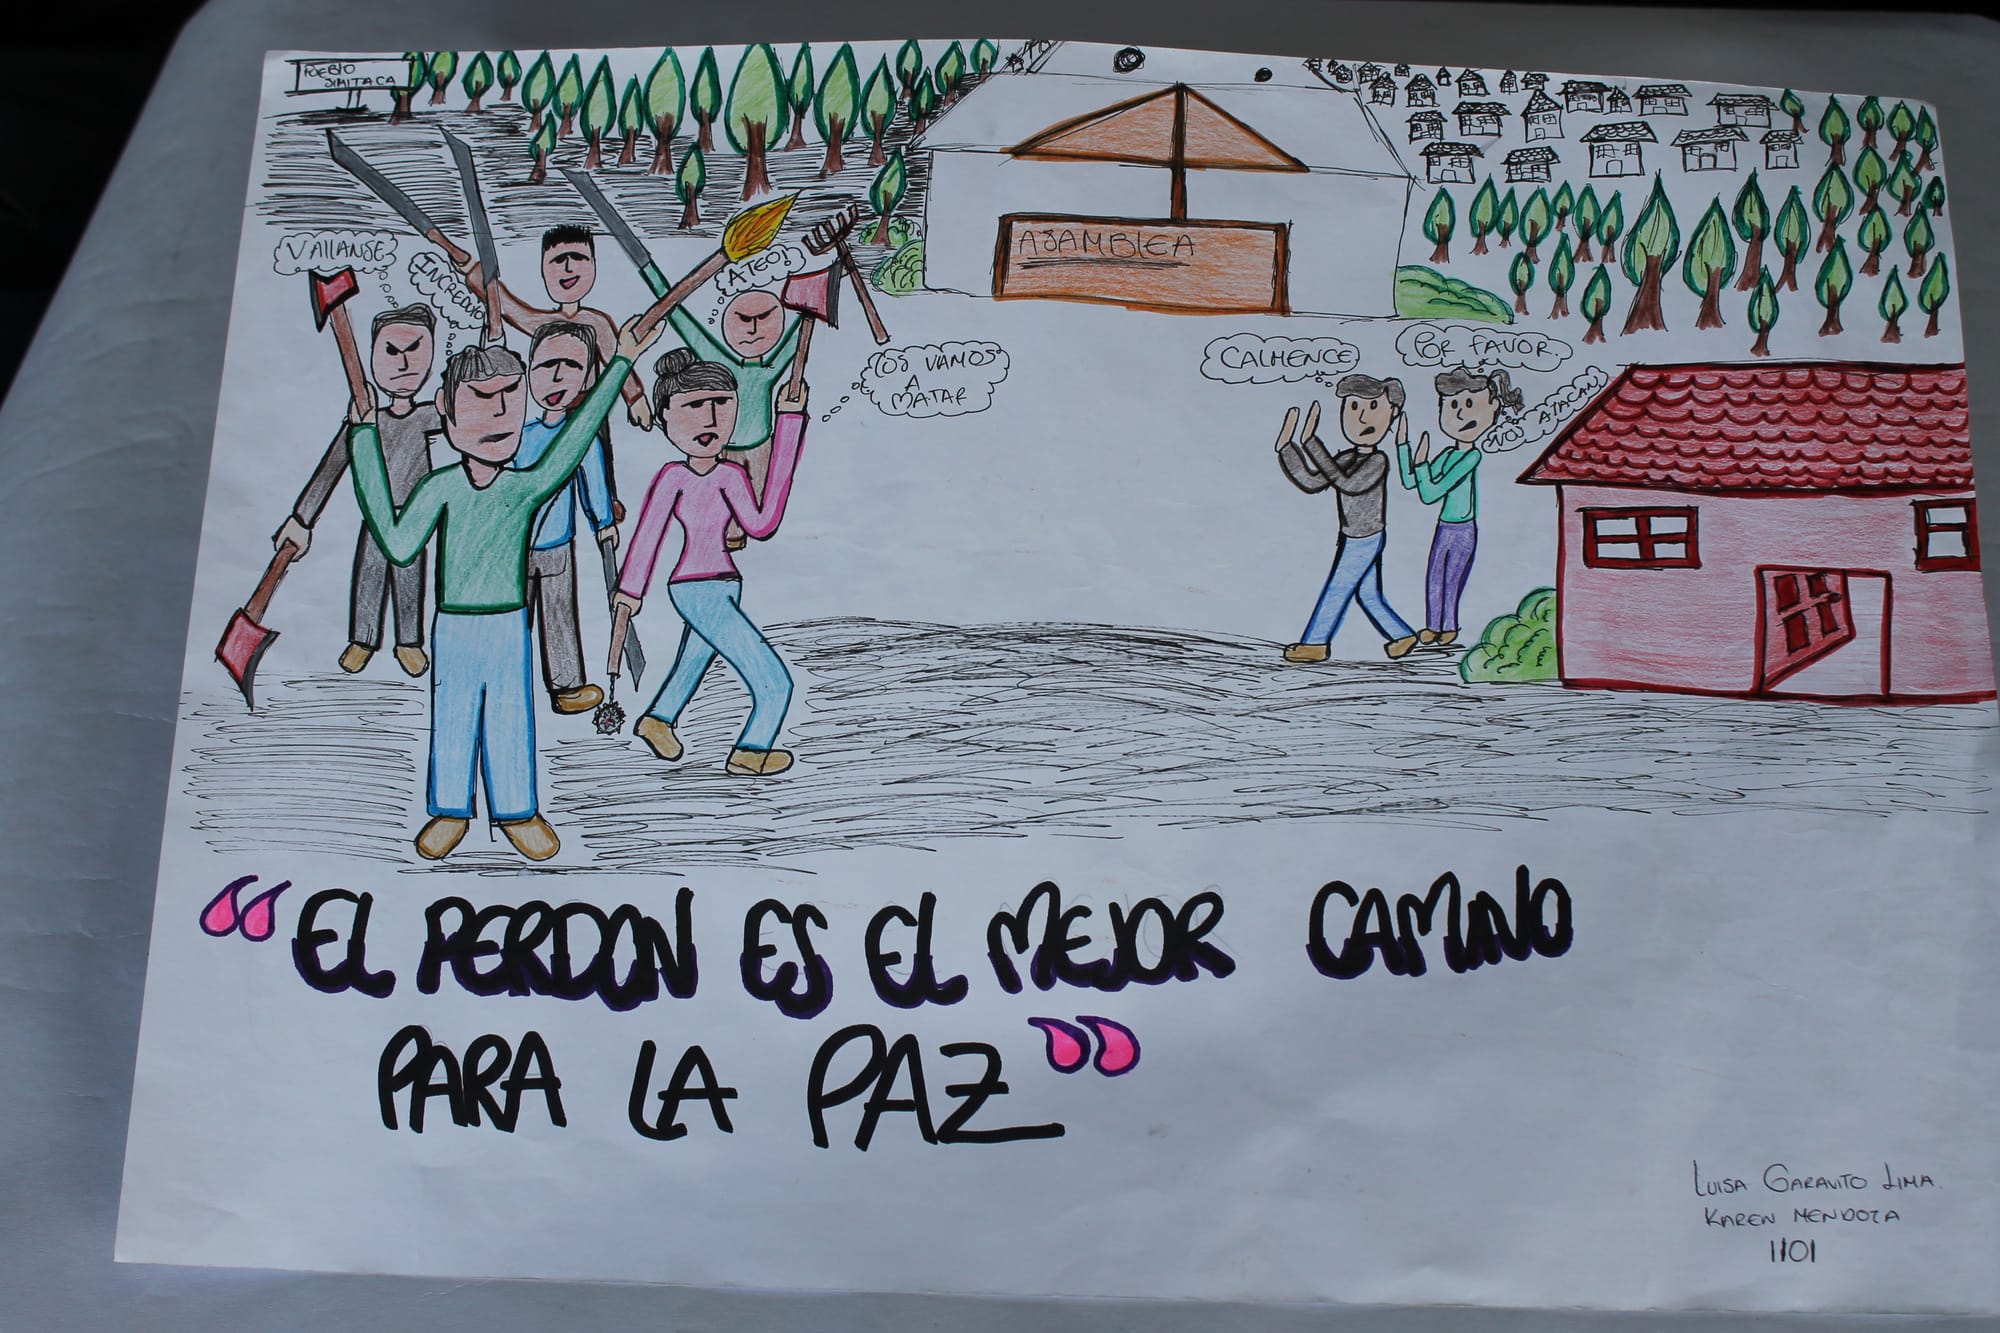 PUEBLO
SIMITACA
VAILANSE
INCREDULO
ATEO!
LOS VAMOS
A
MATAR
ASAMBLEA
CALMENCE
POR FAVOR.
NOS ATACAN
"EL PERDON ES EL MEJOR CAMINO
PARA LA PAZ"
LUISA GARAVITO LIMA.
KAREN MENDOZA
1101